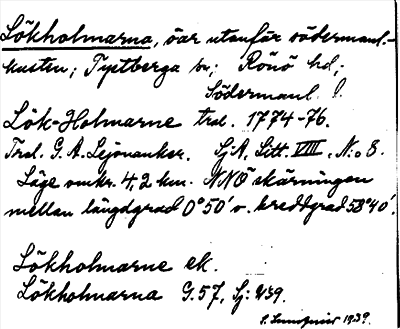 Lökholmarna, öar utanför södermanl.-
kusten; Tystberga sn; Rönö hd;
Södermanl. l.
Lök-Holmarne trol. 1774-76.
Trol. G. A. Lejonanker. SjA, Litt. VIII. No 8.
Läge omkr. 4,2 km. NNÖ skärningen
mellan längdgrad 0°50' o. breddgrad 58°40'.
Lökholmarne ek.
Lökholmarna G.57, Sj: 939.
1939.